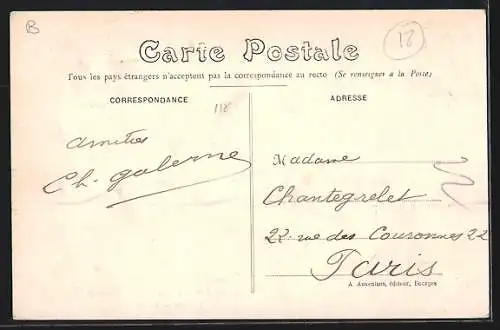 B
18
Carte Postale
Tous les pays étrangers n'acceptent pas la correspondance au recto (Se renseigner à la Poste)
CORRESPONDANCE
ADRESSE
118
Amitiés
Ch. Galerne
Madame
Chantegrelet
22 rue des Couronnes 22
Paris
A. Auxenfans, éditeur, Bourges